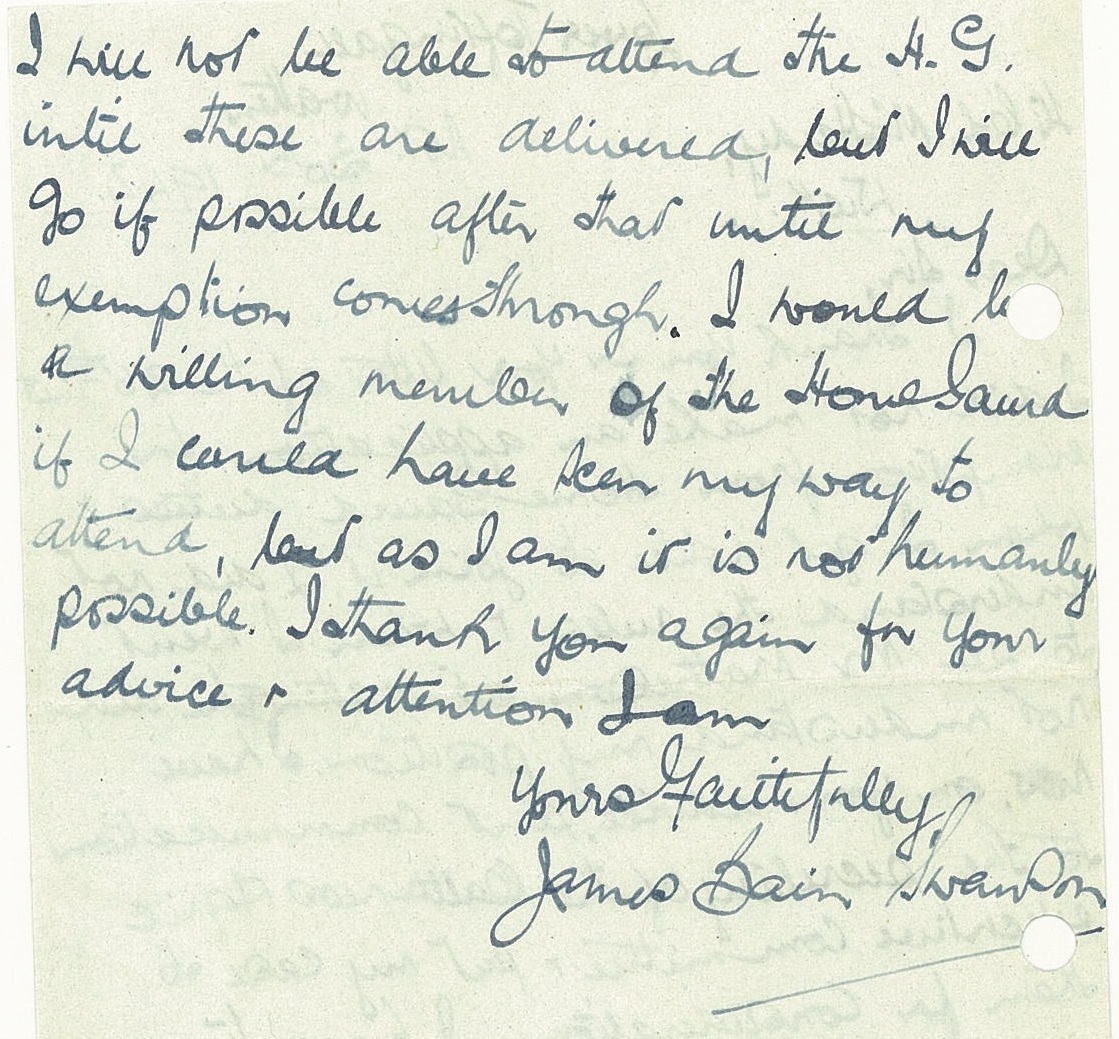 I will not be able to attend the H. G.
intil these are delivered, but I will
go if possible after that until my
exemption comes through. I would be
a willing member of the Home Gaurd
if I could have seen my way to
attend, but as I am it is not humanly
possible. I thank you again for your
advice & attention I am
Yours Faithfully,
James Bain Swanson